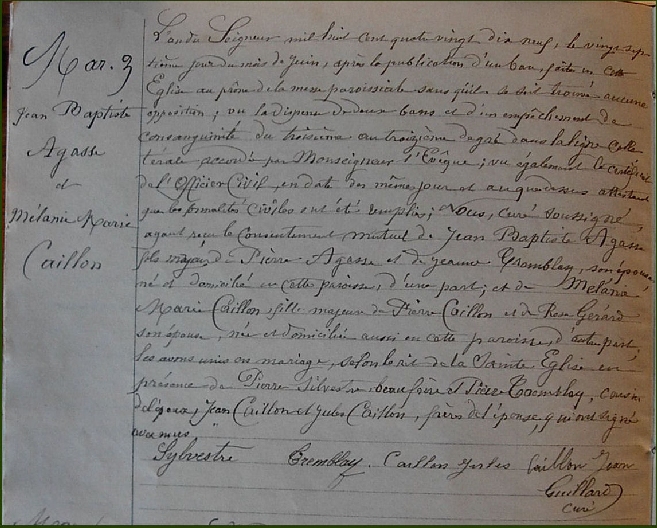 Mar. 3
Jean Baptiste
Agasse
et
Mélanie Marie
Caillon
L'an du Seigneur mil huit cent quatre vingt dix neuf, le vingt sep
tième jour du mois de Juin, après la publication d'un ban, faite en cette
Eglise au prône de la messe paroissiale sans qu'il se soit trouvé aucune
opposition; vu la dispense de deux bans et d'un empêchement de
consanguinité du troisième au troisième degré dans la ligne colla
térale accordée par Monseigneur l'Evêque; vu également le certificat
de l'Officier Civil, en date des même jour et an que dessus attestant
que les formalités civiles ont été remplies; Nous, curé soussigné,
ayant reçu le consentement mutuel de Jean Baptiste Agasse
fils majeur de Pierre Agasse et de Jeanne Tremblay, son épouse
né et domicilié en cette paroisse, d'une part; et de Mélanie
Marie Caillon, fille majeure de Pierre Caillon et de Rose Gérard
son épouse, née et domiciliée aussi en cette paroisse, d'autre part,
les avons unis en mariage, selon le rit de la Sainte Eglise en
présence de Pierre Silvestre beaufrère et Pierre Tremblay, cousin
de l'époux, Jean Caillon et Jules Caillon, frères de l'épouse, qui ont signé
avec nous.
Sylvestre Tremblay. Caillon Jules Caillon Jean
Guillard
curé